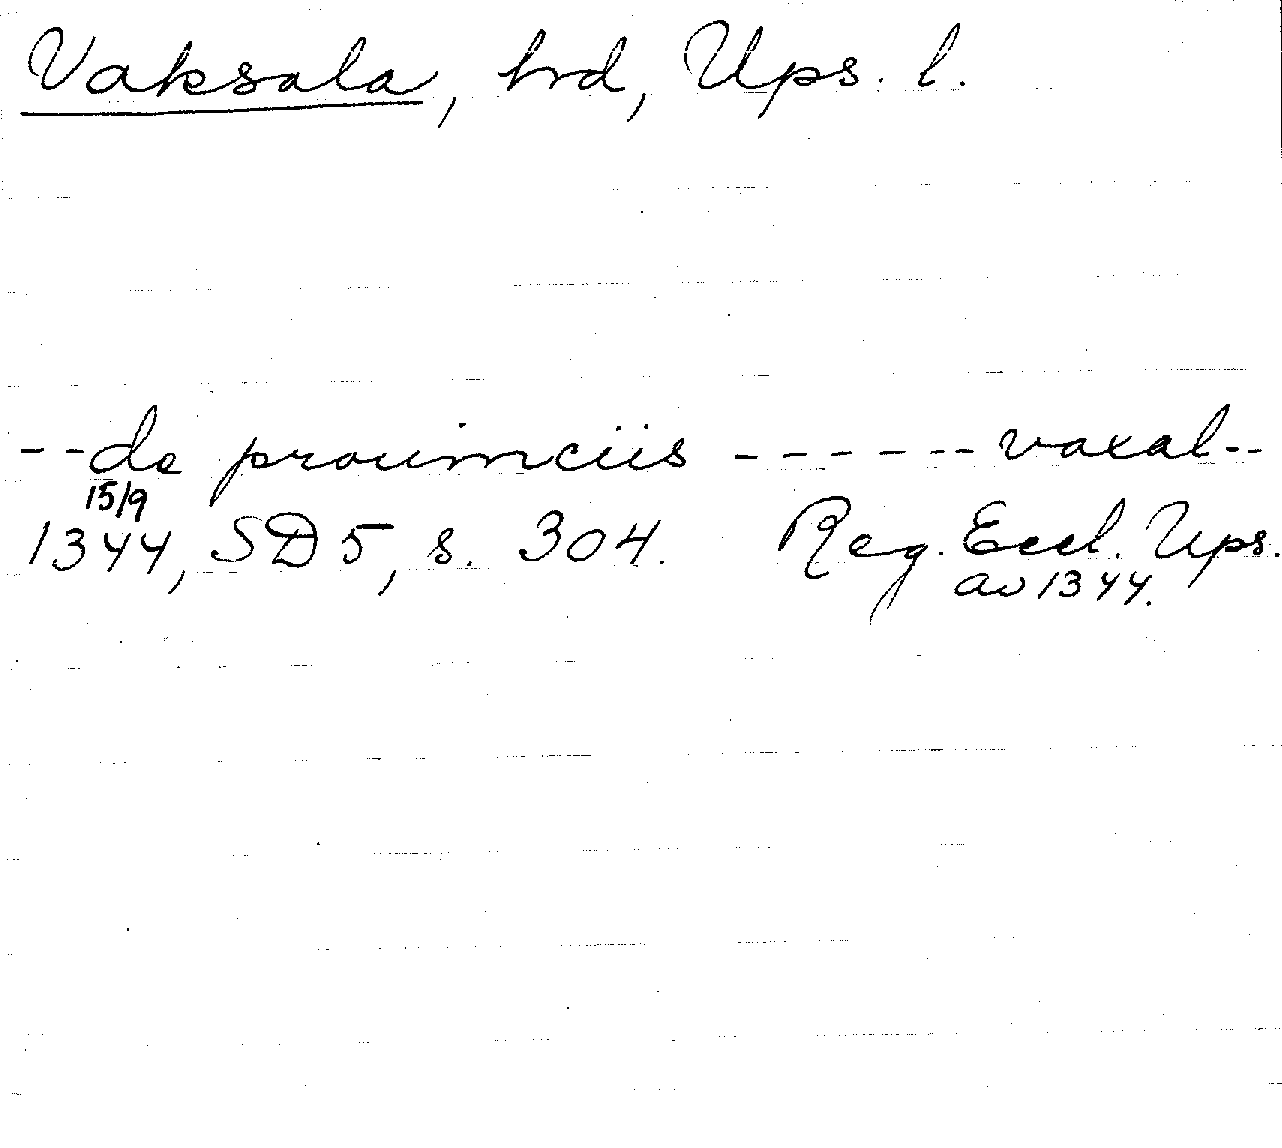 Vaksala, hrd, Ups. l.
--de prouinciis ------vaxal--
15/9
1344, SD 5, s. 304. Reg. Eccl. Ups.
av 1344.